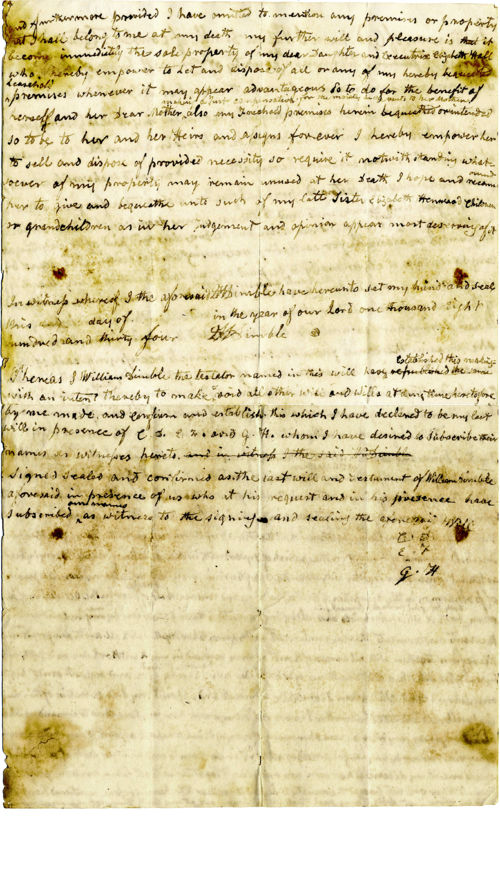 and furthermore provided I have omitted to mention any premises or property
that shall belong to me at my death my further will and pleasure is that it
become immediately the sole property of my dear Daughter and Executrix Elizabeth Hall
who I hereby empower to Let and dispose of all or any of my hereby bequeathed
Leasehold
premises whenever it may appear advantageous so to do for the benefit of
herself and her Dear Mother also my Freehold premises herein bequeathed or intended
so to be to her and her Heirs and asigns for ever I hereby empower her
to sell and dispose of provided necessity so require it notwithstanding what-
soever of my property may remain unused at her Death I hope and recom
mend
her to give and bequeathe unto such of my late Sister Elizabeth Henwood Children
or grandchildren as in her judgement and opinion appear most deserving of it
In witness whereof I the aforesaid W Dimble have hereunto set my hand and seal
this day of in the year of our Lord one thousand eight
hundred and thirty four Dimble
established this making
Whereas I William Dimble the testator named in this will have the same
with an intent thereby to make void all other will and wills at any time heretofore
by me made and confirm and establish this which I have declared to be my last
will in presence of C. D. E. F. and G. H. whom I have desired to Subscribe their
names as witnesses hereto and in witness I the said
Signed Sealed and confirmed as the last will and testament of William Dimble
aforesaid in presence of us who at his request and in his presence have
our names
subscribed as witness to the signing and sealing the
C. D.
E. F
G. H